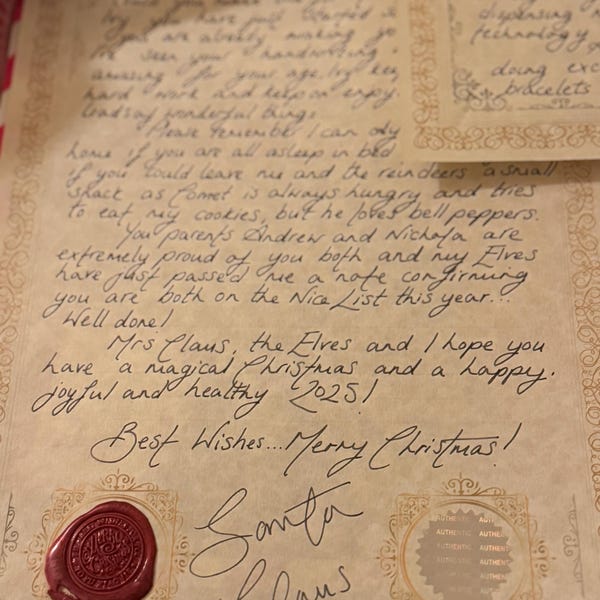 try you have just started is
you are already making go
I've seen your handwriting
amazing for your age, Ivy kee
hard work and keep on enjoy
loads of wonderful things.
Please remember I can only
home if you are all asleep in bed
if you could leave me and the reindeers a small
snack as Comet is always hungry and tries
to eat my cookies, but he loves bell peppers.
You parents Andrew and Nichola are
extremely proud of you both and my Elves
have just passed me a note confirming
you are both on the Nice List this year...
Well done!
Mrs Claus, the Elves and I hope you
have a magical Christmas and a happy.
joyful and healthy 2025!
Best Wishes... Merry Christmas!
Santa
Claus
dispensing
technology
doing exc
bracelets
AUTHENTIC AUT
AUTHENTI
AUTHENTIC AUTHEN
AUTHENTIC AUTHEN
AUTHENTIC